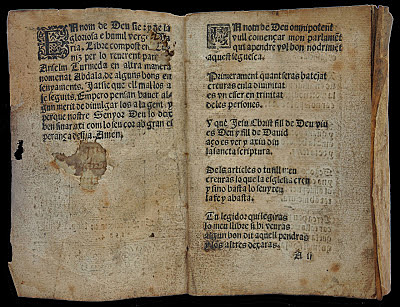 EN nom de Deu sie: y de la
gloriosa e humil verge
ria. Libre compost en
niz per lo reuerent pare
Anselm Turmeda en altra manera
nomenat Abdala. de alguns bons en
senyaments. Jatsie que ell mal los a
je seguits. Empero pensan hauer al
gun merit de diuulgar los a la gent. y
perque nostre Senyor Deu lo dex
ben finar axi com lo seu cor ab gran es
perança desija. Amen.
EN nom de Deu omnipotent
vull començar mon parlament
qui apendre vol bon nodriment
aquest segueca.
Primerament quant seras batejat
creuras en la diuinitat
es vn esser en trinitat
de les persones.
Y que Jesu Christ fill de Deu viu
es Deu y fill de Dauid
aço es ver y axiu diu
la sancta scriptura.
Dels articles o tu fill meu
creuras lo que la esglesia creu
y sino basta lo seny teu
la fe y abasta.
Tu legidor qui legiras
lo meu llibre si bi veuras
algun bon dit aquell pendras
y los altres dexaras.
A ij